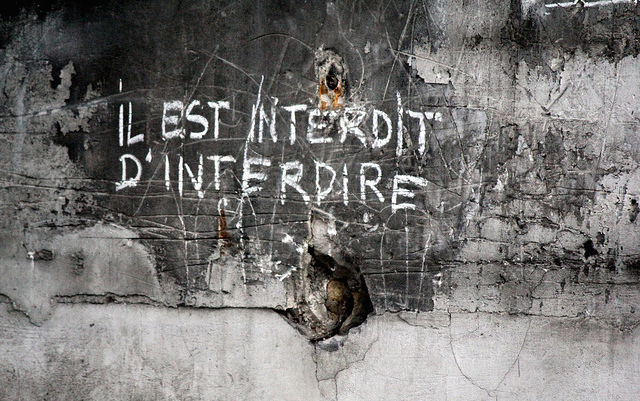 IL EST INTERDIT
D'INTERDIRE